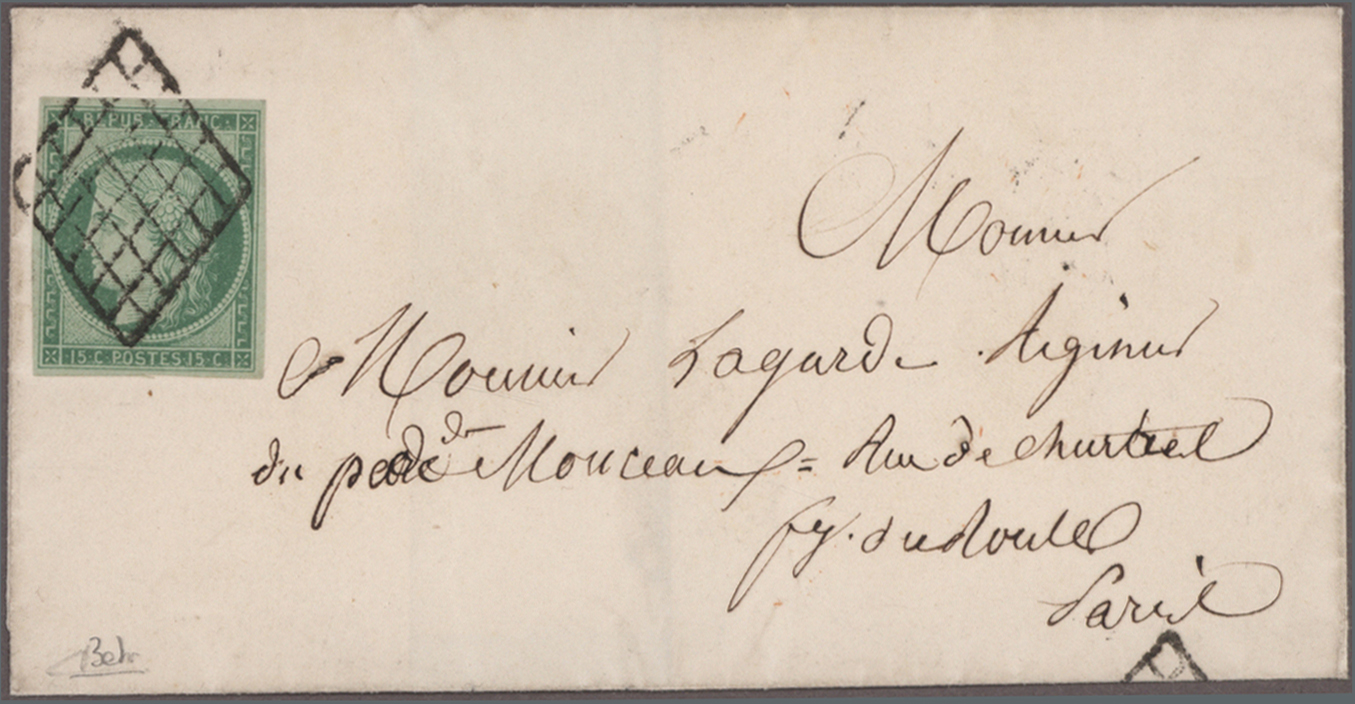 REPUB. FRANC.
15·C·POSTES·15·C·
Monsieur
Monsieur Lagarde Régisseur
du parc de Monceaux = Rue de Chartres
fg. du Roule
Paris
Behr